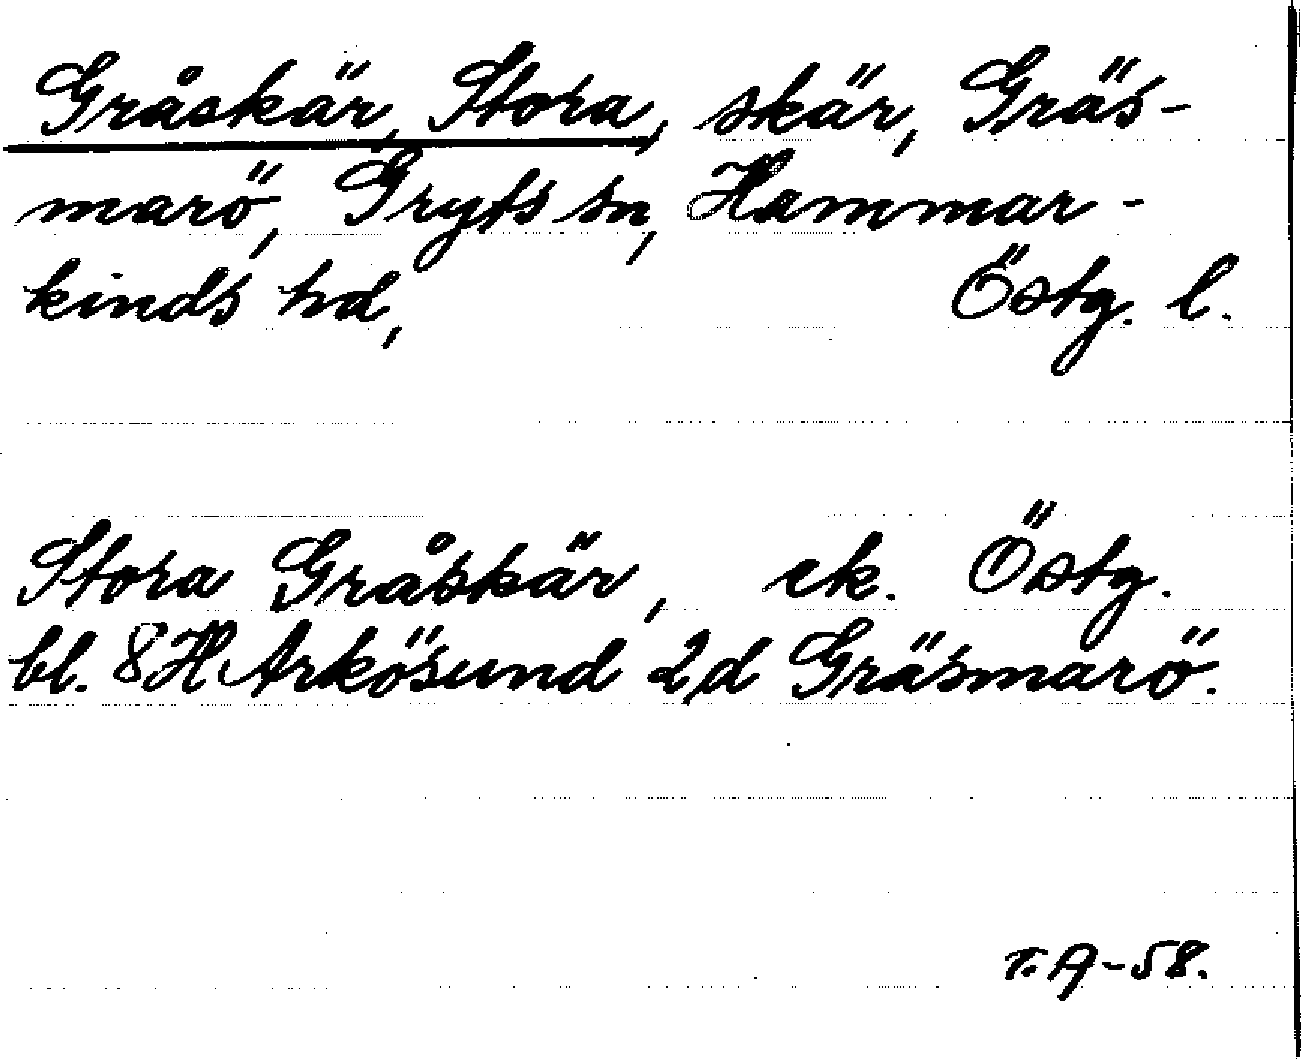 Gråskär, Stora, skär, Gräs-
marö, Gryts sn, Hammar-
kinds hd, Östg. l.
Stora Gråskär, ek. Östg.
bl. 8H Arkösund 2d Gräsmarö.
T.A-58.